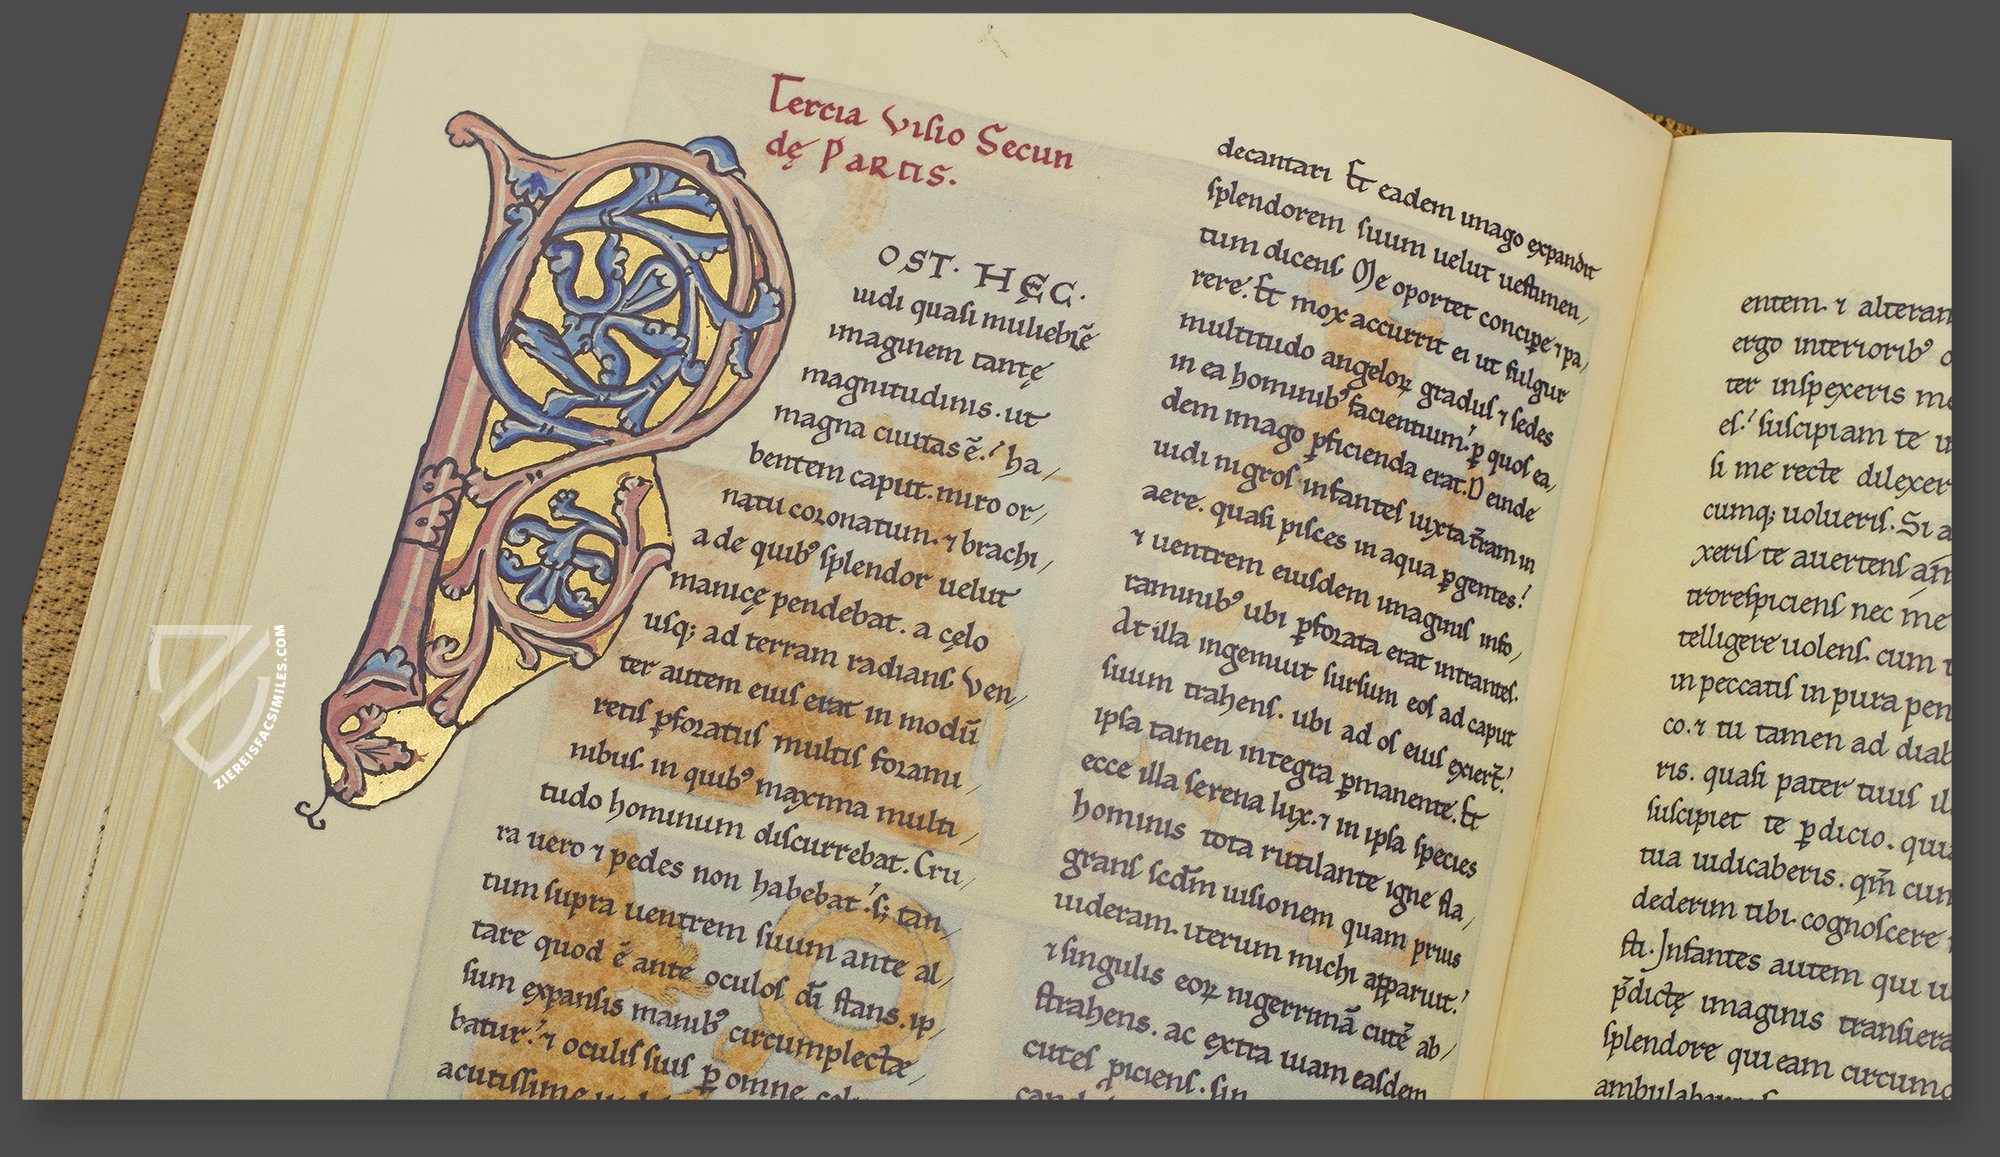 Tercia Visio Secun
dę Partis.
P
OST. HĘC.
uidi quasi muliebrē
imaginem tantę
magnitudinis. ut
magna ciuitas ē.' ha/
bentem caput. miro or/
natu coronatum. ⁊ brachi/
a de quibꝰ splendor uelut
manicę pendebat. a cęlo
usq; ad terram radians Ven/
ter autem eius erat in modū
retis ꝑforatus multis forami/
nibus. in quibꝰ maxima multi/
tudo hominum discurrebat. Cru/
ra uero ⁊ pedes non habebat.' s; tan/
tum supra uentrem suum ante al/
tare quod ē ante oculos dī stans. ip/
sum expansis manibꝰ circumplecte/
batur.' ⁊ oculis suis ꝑ omne
acutissime
decantari Et eadem imago expandit
splendorem suum uelut uestimen/
tum dicens Me oportet concipe ⁊ pa/
rere.' Et mox accurrit ei ut fulgur
multitudo angeloꝝ gradus ⁊ sedes
in ea hominibꝰ facientium.' ꝑ quos ea/
dem imago ꝑficienda erat. Deinde
uidi nigros infantes iuxta t̄ram in
aere. quasi pisces in aqua ꝑgentes.'
⁊ uentrem eiusdem imaginis info/
raminibꝰ ubi ꝑforata erat intrantes.
At illa ingemuit sursum eos ad caput
suum trahens. ubi ad os eius exiert̄.'
ipsa tamen integra ꝑmanente. Et
ecce illa serena lux. ⁊ in ipsa species
hominis tota rutilante igne fla/
grans scd̄m uisionem quam prius
uideram. iterum michi apparuit.'
⁊ singulis eoꝝ nigerrimā cutē ab/
strahens. ac extra uiam easdem
cutes ꝓiciens. sin
entem. ⁊ alteram
ergo interioribꝰ
ter inspexeris
es.' suscipiam te
si me recte dilexer
cumq; uolueris. Si a
xeris te auertens
trorespiciens nec me
telligere uolens. cum
in peccatis in pura pen
co. ⁊ tu tamen ad diab
ris. quasi pater tuus
suscipiet te ꝑdicio.
tua iudicaberis. qm̄ cum
dederim tibi cognoscere
sti. Infantes autem qui
p̄dictę imaginis transiera
splendore qui eam circum
ZIEREISFACSIMILES.COM